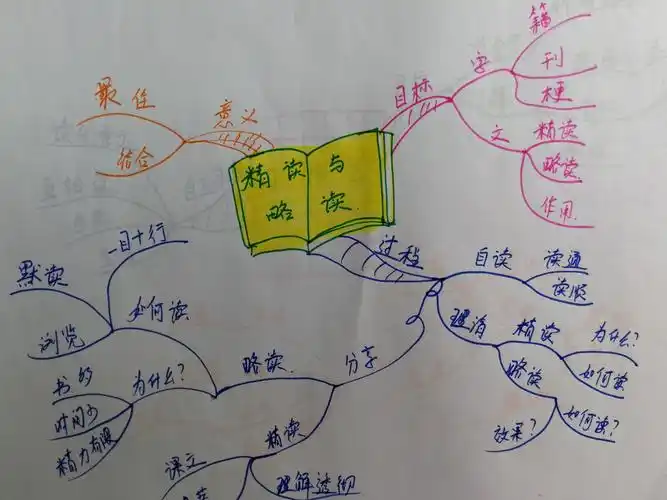 精读与
略读
目标
字
籍
刊
梗
文
精读
略读
作用
意义
最佳
结合
过程
自读
读通
读顺
理清
精读
为什么?
如何读
略读
如何读?
效果?
分享
略读
如何读
一目十行
默读
浏览
为什么?
书多
时间少
精力有限
精读
课文
理解透彻